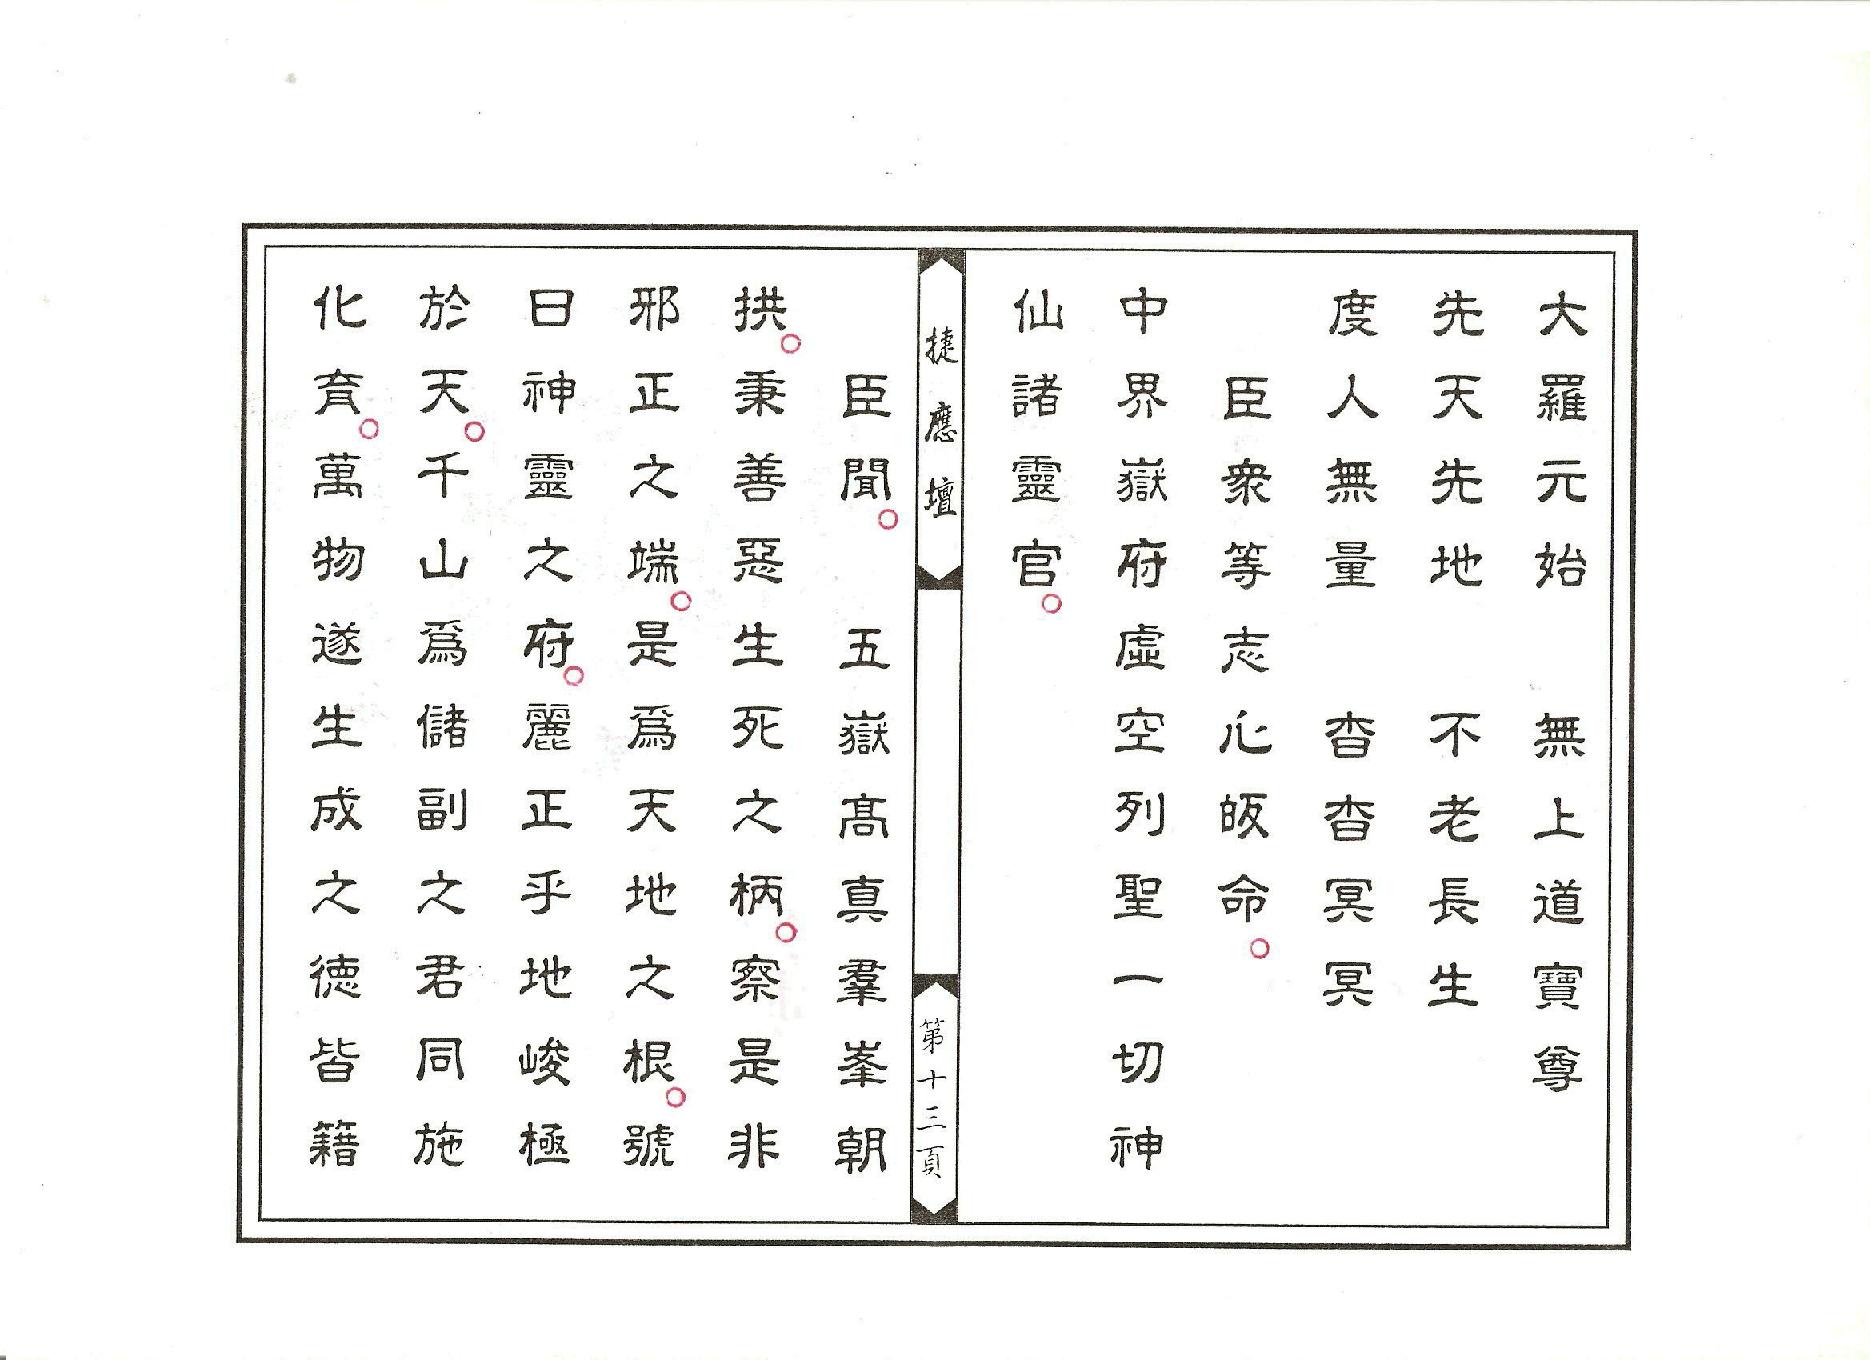 大羅元始　無上道寶尊
先天先地　不老長生
度人無量　杳杳冥冥
臣衆等志心皈命。
中界嶽府虛空列聖一切神
仙諸靈官。
捷應壇
第十三頁
臣聞。　五嶽高真羣峯朝
拱。秉善惡生死之柄。察是非
邪正之端。是爲天地之根。號
曰神靈之府。麗正乎地峻極
於天。千山爲儲副之君同施
化育。萬物遂生成之德皆籍